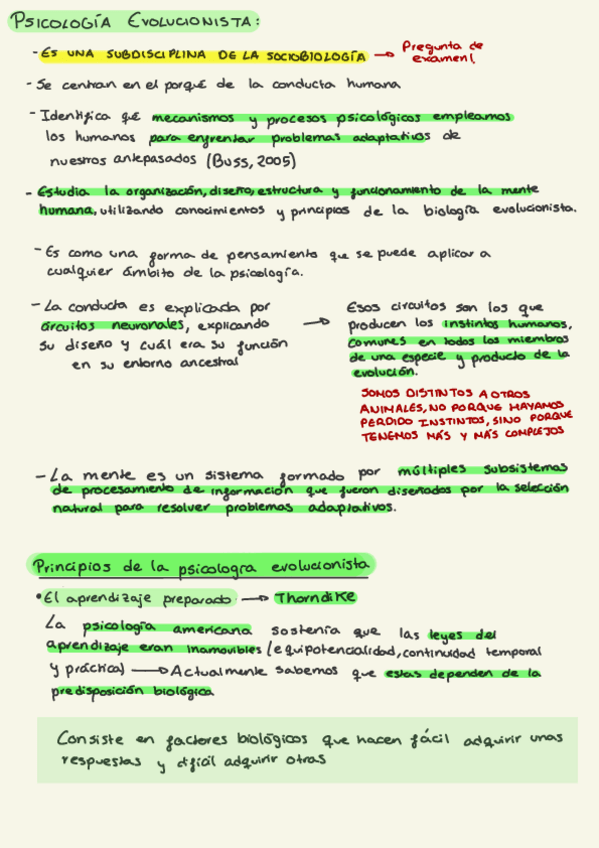 PSICOLOGÍA EVOLUCIONISTA:
- ES UNA SUBDISCIPLINA DE LA SOCIOBIOLOGÍA → Pregunta de
examen!
- Se centran en el porqué de la conducta humana
- Identifica qué mecanismos y procesos psicológicos empleamos
los humanos para enfrentar problemas adaptativos de
nuestros antepasados (Buss, 2005)
- Estudia la organización, diseño, estructura y funcionamiento de la mente
humana, utilizando conocimientos y principios de la biología evolucionista.
- Es como una forma de pensamiento que se puede aplicar a
cualquier ámbito de la psicología.
- La conducta es explicada por
circuitos neuronales, explicando
su diseño y cuál era su función
en su entorno ancestral
→ Esos circuitos son los que
producen los instintos humanos,
comunes en todos los miembros
de una especie y producto de la
evolución.
SOMOS DISTINTOS A OTROS
ANIMALES, NO PORQUE HAYAMOS
PERDIDO INSTINTOS, SINO PORQUE
TENEMOS MÁS Y MÁS COMPLEJOS
- La mente es un sistema formado por múltiples subsistemas
de procesamiento de información que fueron diseñados por la selección
natural para resolver problemas adaptativos.
Principios de la psicologra evolucionista
• El aprendizaje preparado → Thorndike
La psicología americana sostenía que las leyes del
aprendizaje eran inamovibles (equipotencialidad, continuidad temporal
y práctica) → Actualmente sabemos que estas dependen de la
predisposición biológica
Consiste en factores biológicos que hacen fácil adquirir unas
respuestas y difícil adquirir otras